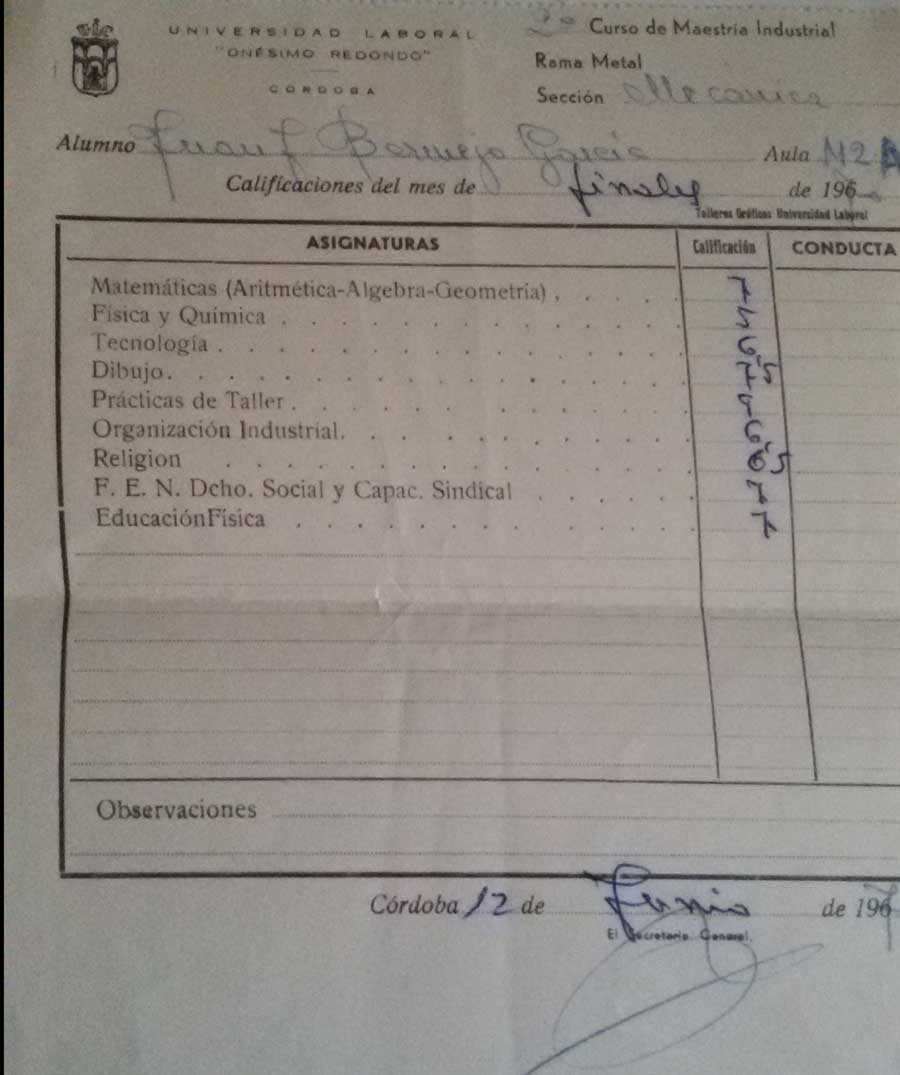 UNIVERSIDAD LABORAL
"ONÉSIMO REDONDO"
CÓRDOBA
2º Curso de Maestría Industrial
Rama Metal
Sección Mecánica
Alumno Juan J. Bermejo García Aula M2A
Calificaciones del mes de finales de 196
Talleres Gráficos Universidad Laboral
ASIGNATURAS Calificación CONDUCTA
Matemáticas (Aritmética-Algebra-Geometría) 7
Física y Química 5
Tecnología 6,5
Dibujo 7
Prácticas de Taller
Organización Industrial 6,5
Religion 6
F. E. N. Dcho. Social y Capac. Sindical 7
EducaciónFísica 7
Observaciones
Córdoba 12 de Junio de 1967
El Secretario General.